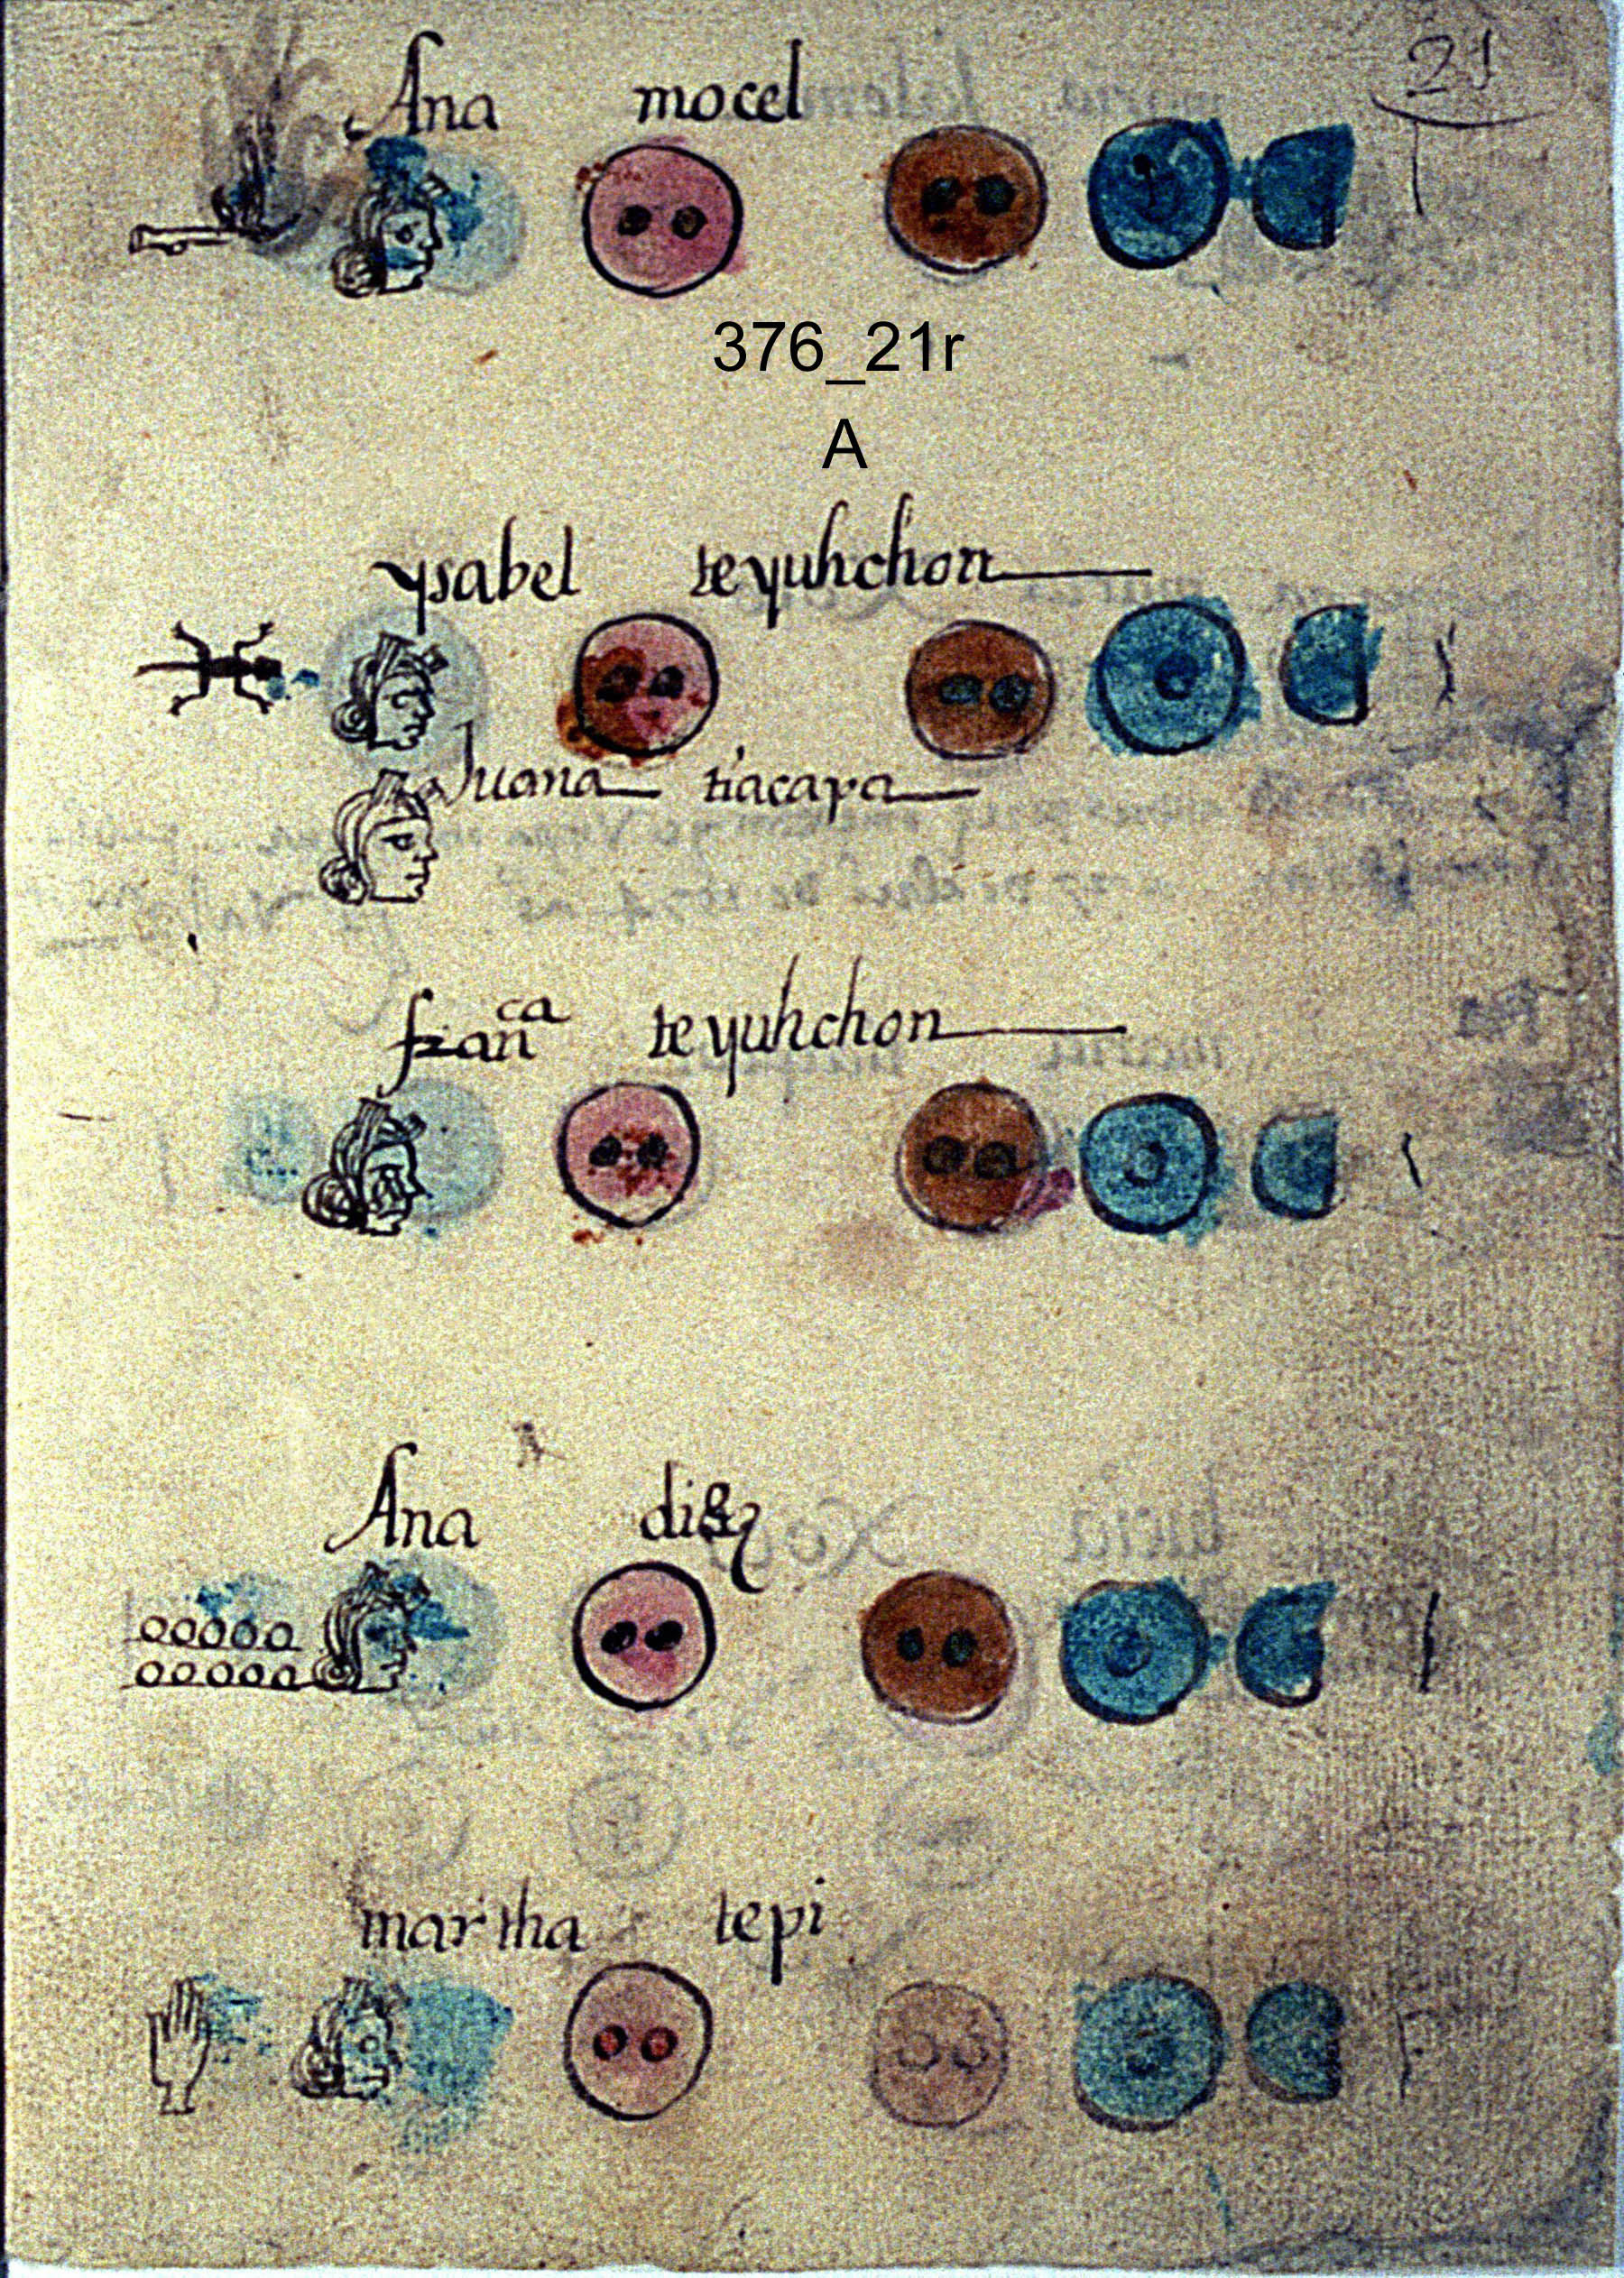 21
Ana mocel
376_21r
A
ysabel teyuhchon
Juana tiacapa
franca teyuhchon
Ana diez
martha tepi